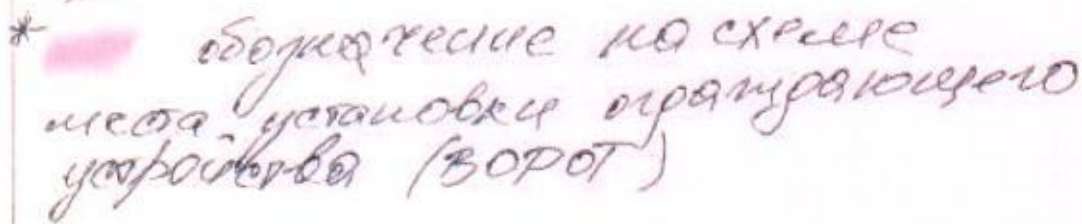 * обозначение на схеме
места установки ограждающего
устройства (ВОРОТ)